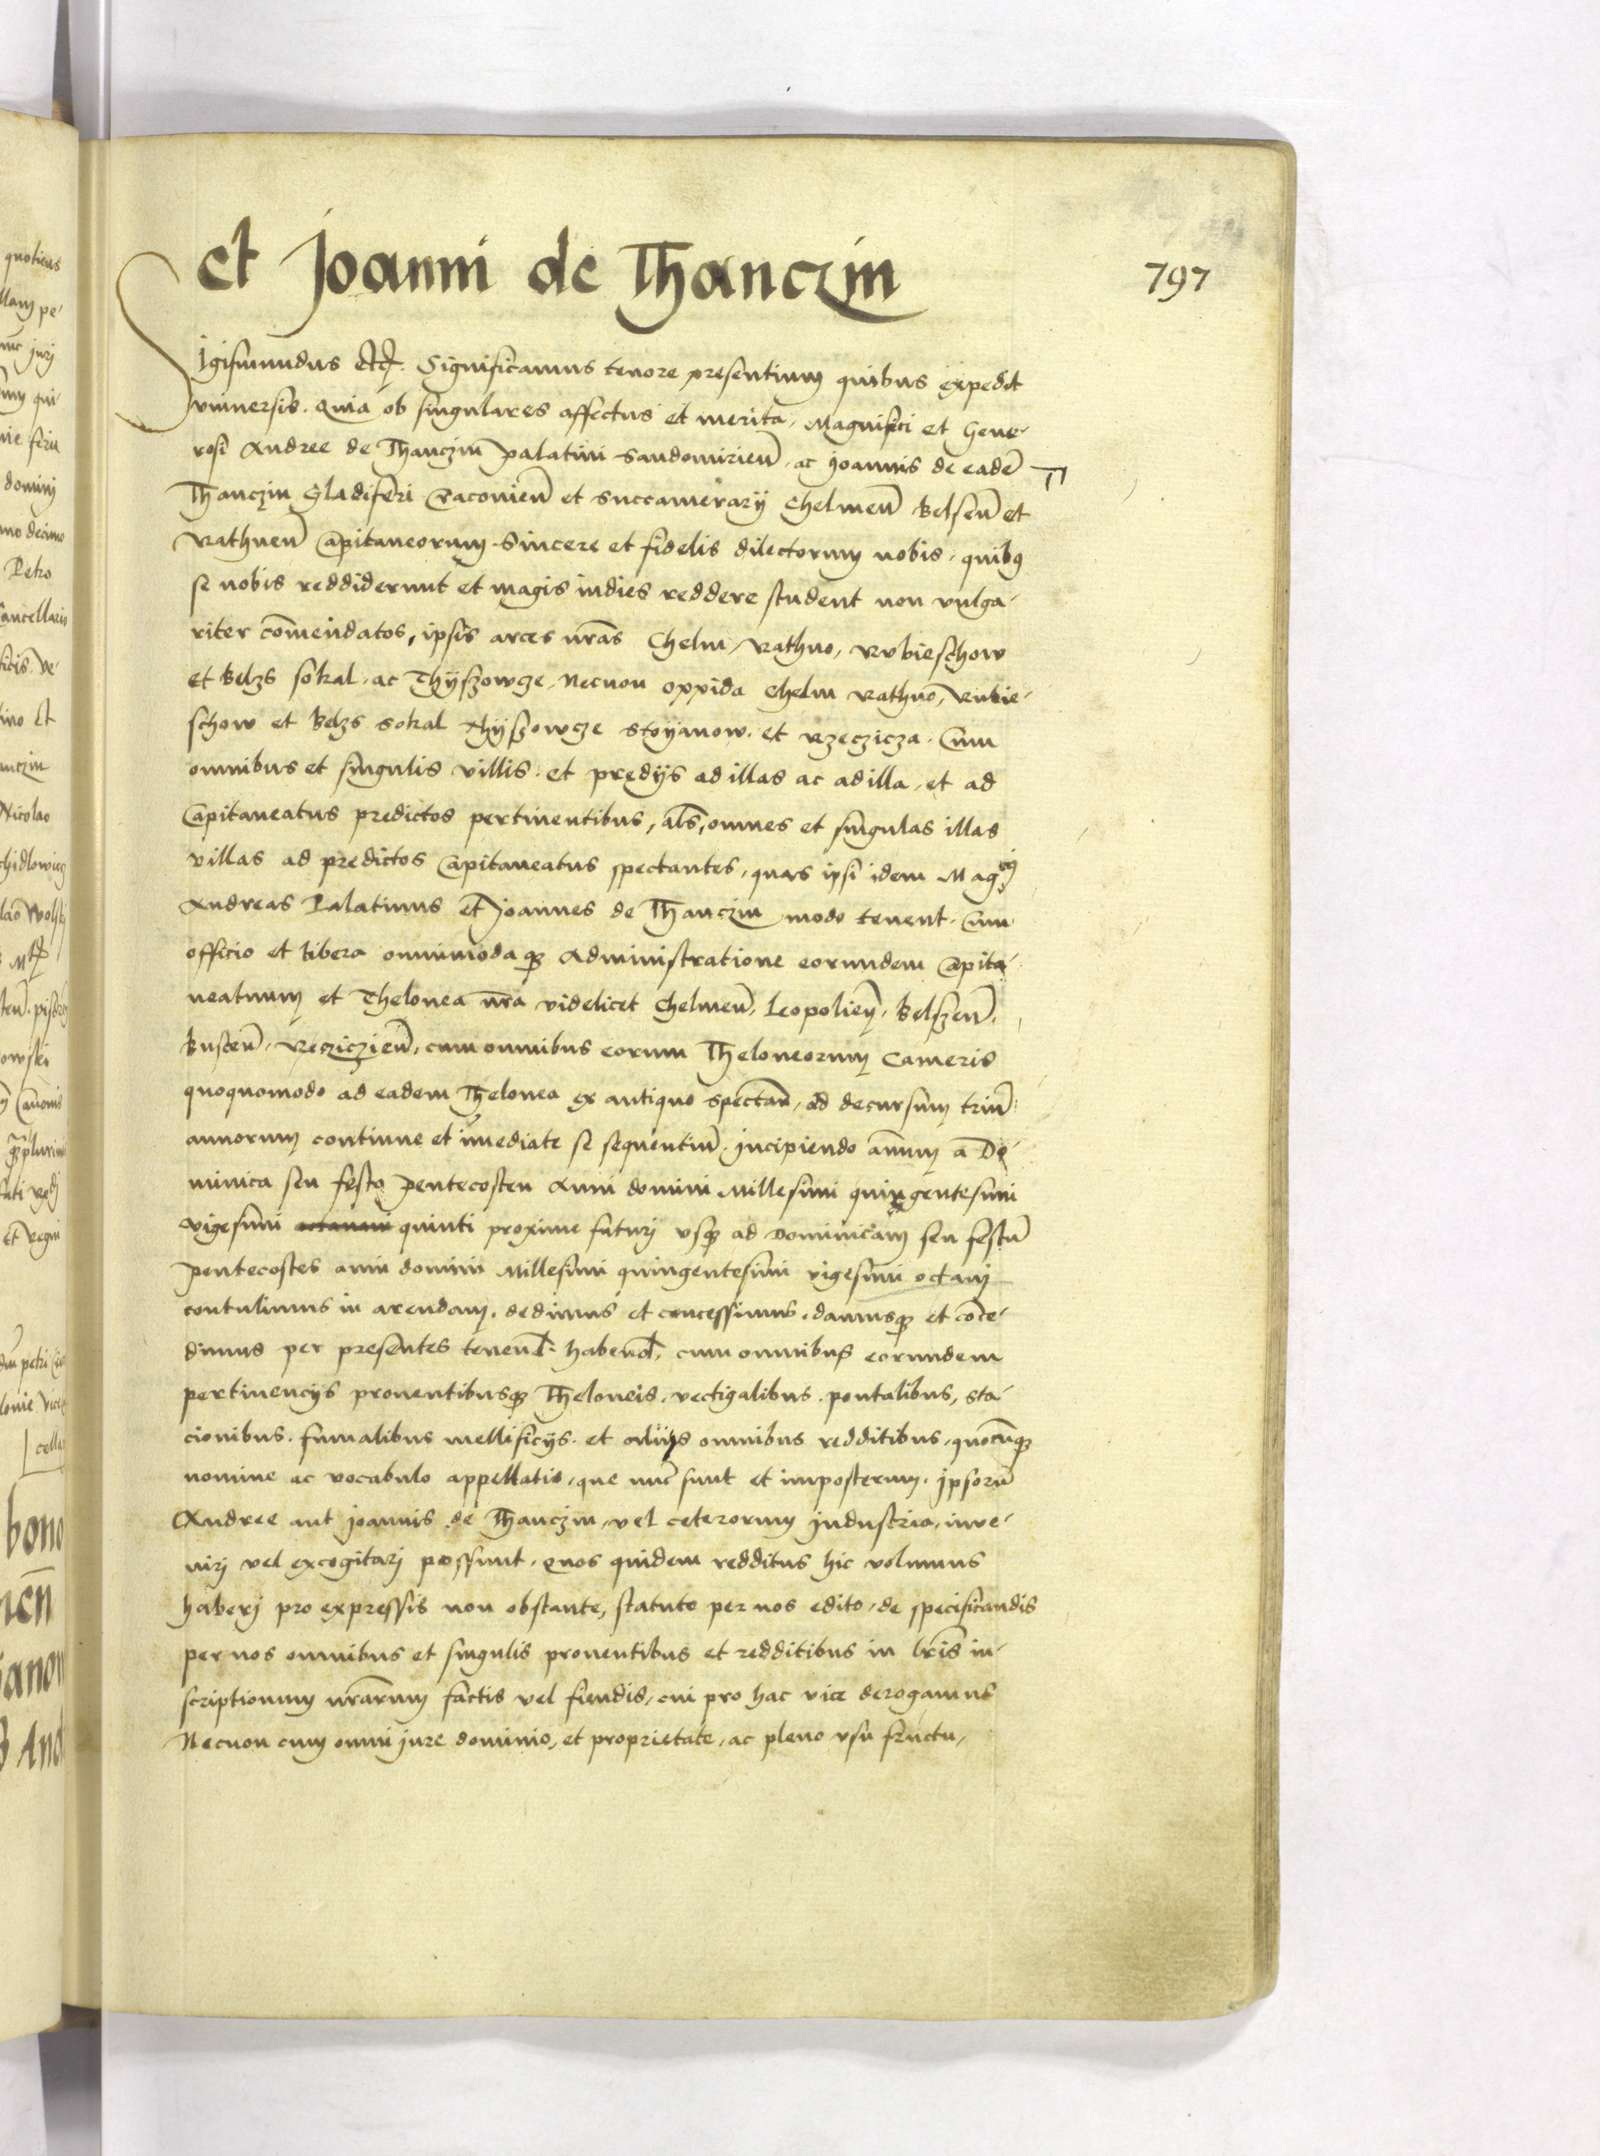 797
et Joanni de Thanczin
Sigismundus etc. Significamus tenore presentium quibus expedit
vniuersis. Quia ob singulares affectus et merita, Magnifici et Gene-
rosi Andree de Thanczin Palatini Sandomirien̄, ac Joannis de eadē
Thanczin Gladiferi Cracouien̄ et Succamerarÿ Chelmen̄ Belsen̄ et
Rathnen̄ Capitaneorum. Sincere et fidelis dilectorum nobis, quibꝰ
se nobis reddiderunt et magis indies reddere student non vulga-
riter com̄endatos, ipsis arces nr̄as Chelm, Rathno, Rubieschow
et Belzs Sokal, ac Thÿszowcze, Necnon oppida Chelm Rathno, Rubie-
schow et Belzs Sokal Thÿszowcze Stoÿanow. et Rzeczicza. Cum
omnibus et singulis villis. et predÿs ad illas ac ad illa, et ad
Capitaneatus predictos pertinentibus, als̄, omnes et singulas illas
villas ad predictos Capitaneatus spectantes, quas ipsi idem Mag^ci
Andreas Palatinus et Joannes de Thanczin modo tenent. Cum
officio et libera omnimodaqꝫ Administratione eorundem Capita-
neatuum et Thelonea nr̄a videlicet Chelmen̄, Leopolien̄, Belszen̄,
Buscen̄, Recziczien̄, cum omnibus eorum Theloneorum Cameris
quoquomodo ad eadem Thelonea ex antiquo spectan̄, ad decursum triū
annorum continue et im̄ediate se sequentiū. incipiendo annum a Do-
minica seu festo Pentecosten Anni domini Millesimi quingentesimi
vigesimi octaui quinti proxime futuri vsqꝫ ad Dominicam seu festū
Pentecostes anni domini Millesimi quingentesimi vigesimi octaui
contulimus in arendam. dedimus et concessimus. damusqꝫ et conce-
dimus per presentes tenend. habend. cum omnibus eorundem
pertinencÿs prouentibusqꝫ Theloneis, vectigalibus. pontalibus, sta-
cionibus. fumalibus mellificÿs. et alÿs omnibus redditibus, quocūqꝫ
nomine ac vocabulo appellatis, que nunc sunt et imposterum, ipsorū
Andree aut Joannis de Thanczin, vel ceterorum industria, inve-
niri vel excogitari possunt. Quos quidem redditus hic volumus
haberi pro expressis non obstante, statuto per nos edito, de specificandis
per nos omnibus et singulis prouentibus et redditibus in lr̄is in-
scriptionum nr̄arum factis vel fiendis, cui pro hac vice derogamus
Necnon cum omni jure dominio, et proprietate, ac pleno vsu fructu,